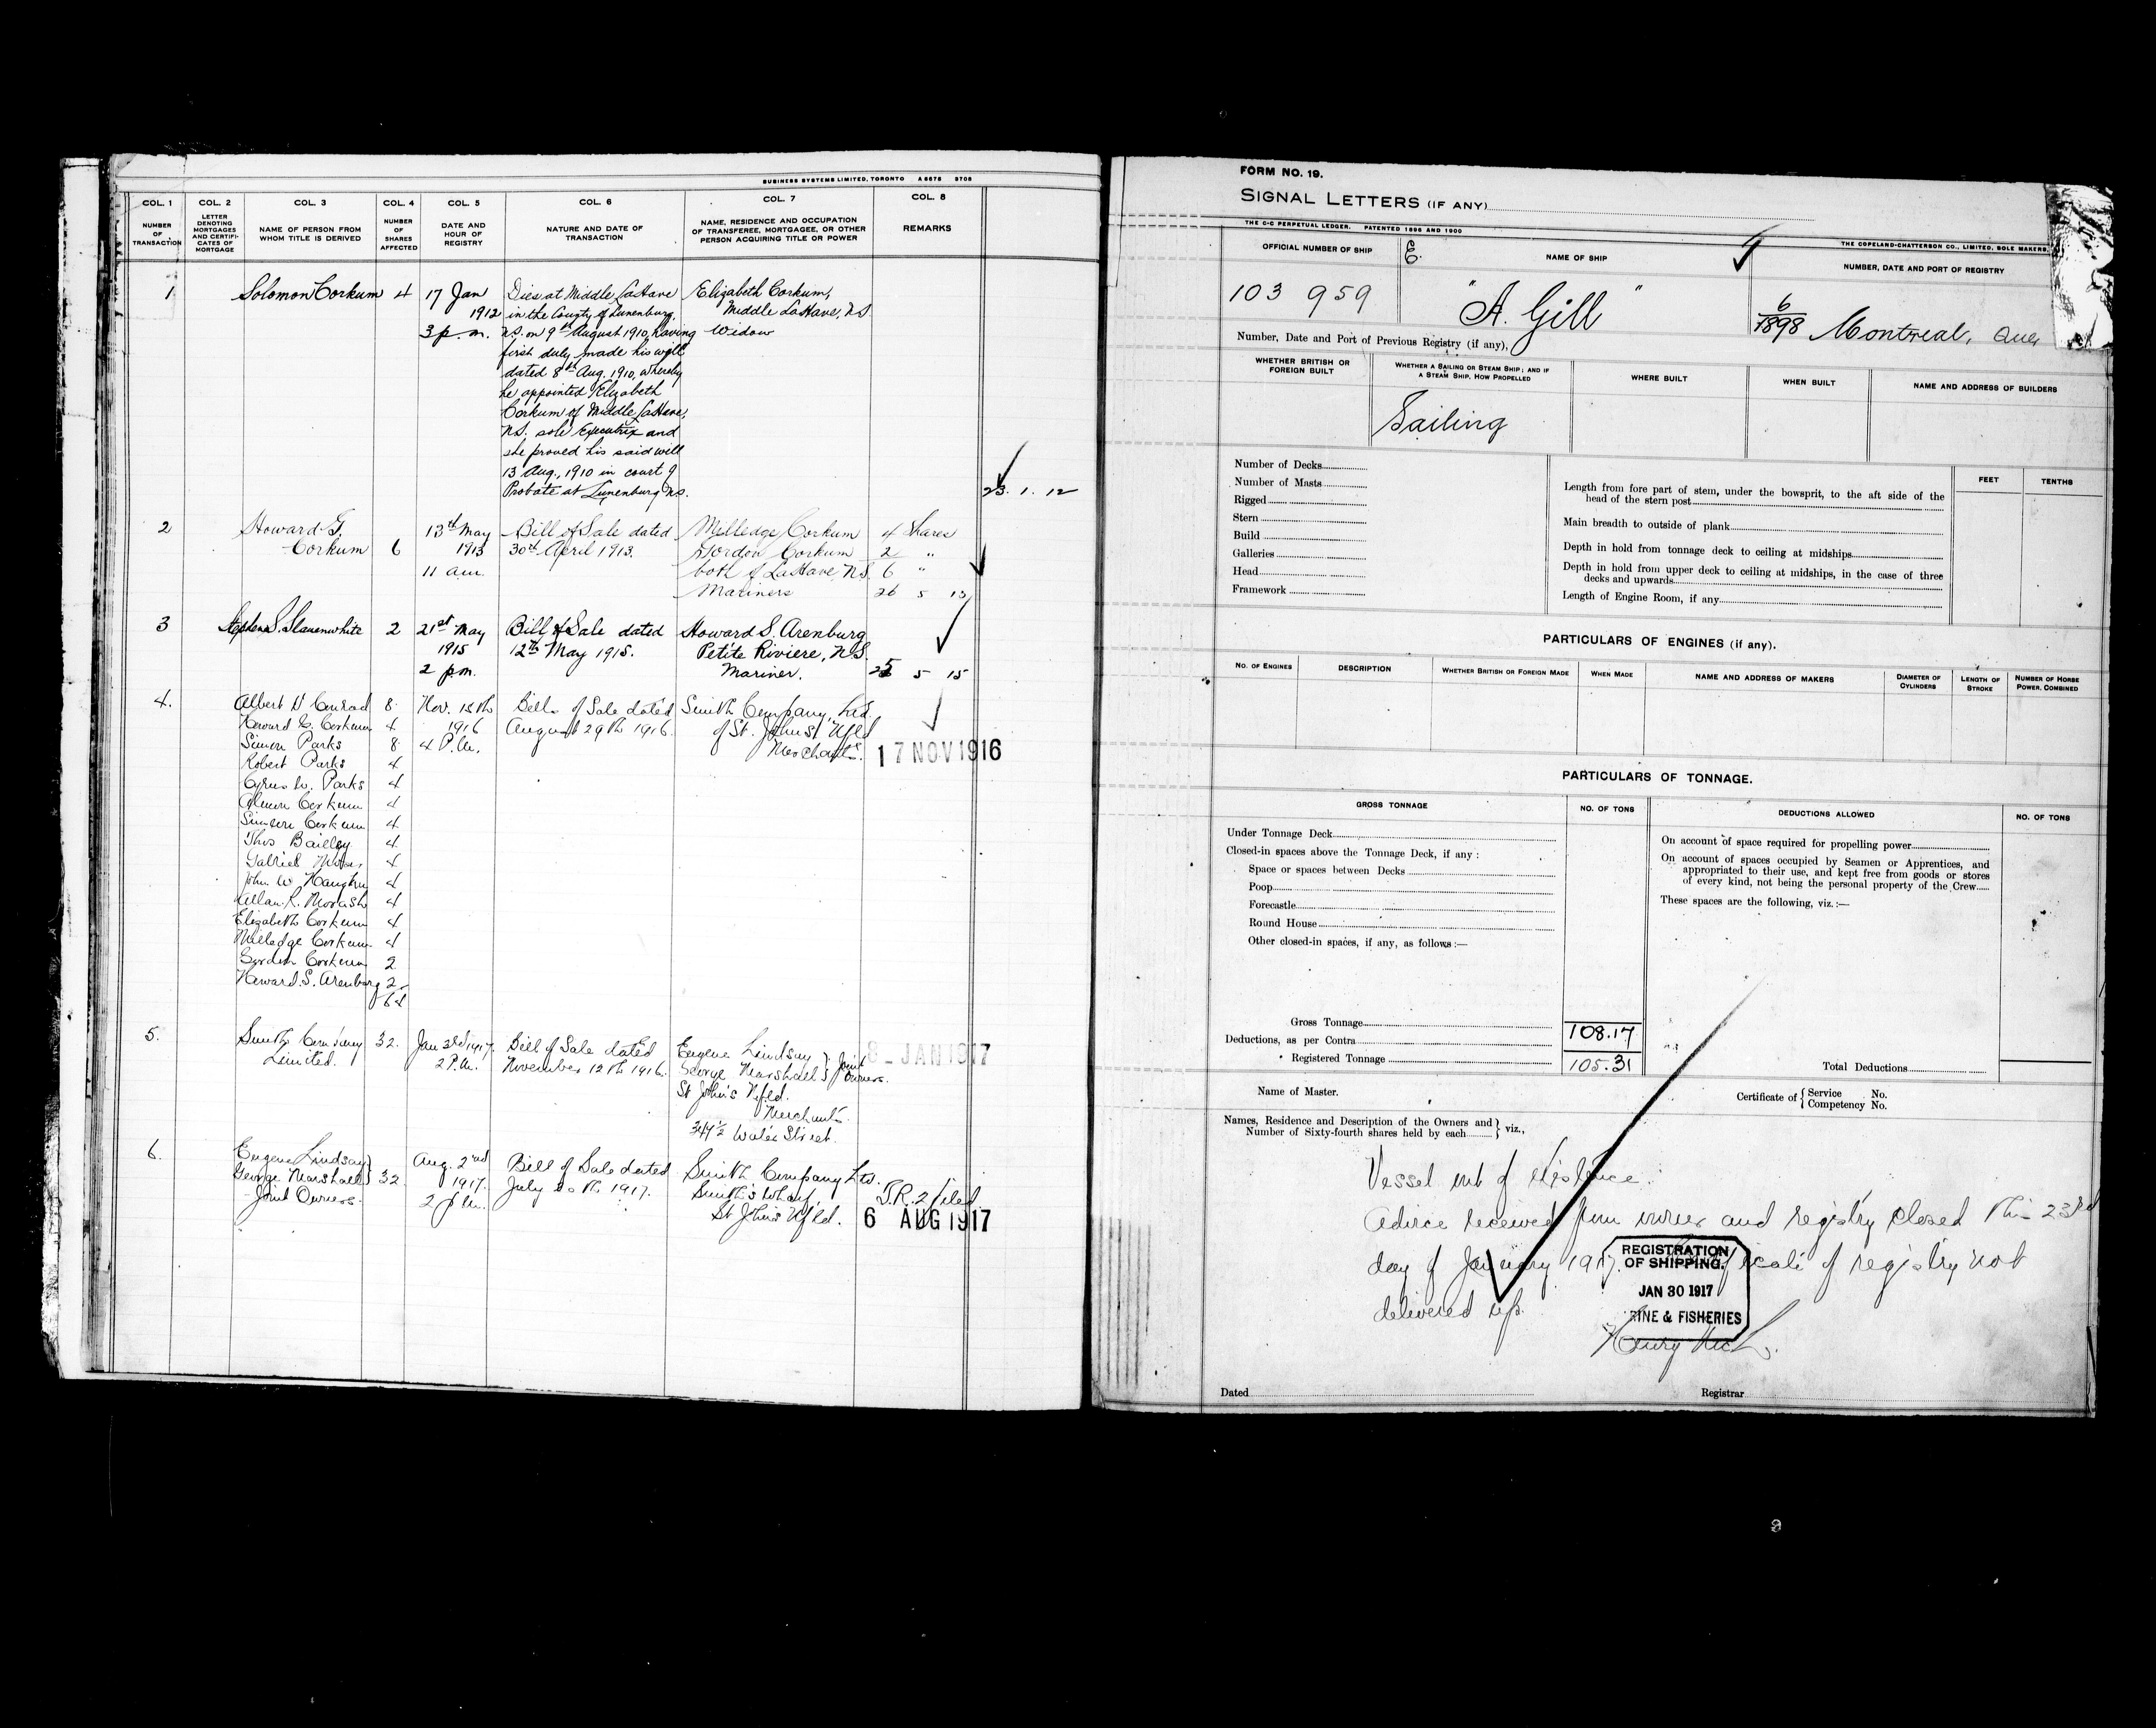 BUSINESS SYSTEMS LIMITED, TORONTO A 5675 3708
COL. 1 COL. 2 COL. 3 COL. 4 COL. 5 COL. 6 COL. 7 COL. 8
NUMBER OF TRANSACTION
LETTER DENOTING MORTGAGES AND CERTIFICATES OF MORTGAGE
NAME OF PERSON FROM WHOM TITLE IS DERIVED
NUMBER OF SHARES AFFECTED
DATE AND HOUR OF REGISTRY
NATURE AND DATE OF TRANSACTION
NAME, RESIDENCE AND OCCUPATION OF TRANSFEREE, MORTGAGEE, OR OTHER PERSON ACQUIRING TITLE OR POWER
REMARKS
1 Solomon Corkum 4 17 Jan Dies at Middle LaHave Elizabeth Corkum,
1912 in the County of Lunenburg, Middle LaHave, N.S.
3 p.m. N.S. on 9th August 1910, having Widow
first duly made his will
dated 8th Aug. 1910, whereby
he appointed Elizabeth
Corkum of Middle LaHave,
N.S. sole Executrix and
she proved his said will
13 Aug., 1910 in court of
Probate at Lunenburg N.S. 23. 1. 12
2 Howard G. 13th May Bill of Sale dated Milledge Corkum 4 Shares
Corkum 6 1913 30th April 1913. Gordon Corkum 2 "
11 a.m. both of LaHave, N.S. 6 "
Mariners 26 5 13
3 Stephen S. Slauenwhite 2 21st May Bill of Sale dated Howard S. Arenburg
1915 12th May 1915. Petite Riviere, N.S.
2 p.m. Mariner. 25 5 15
4. Albert D Conrad 8 Nov. 15th Bills of Sale dated Smith Company, Ltd.
Howard G. Corkum 4 1916 August 29th 1916. of St. John's Nfld
Simon Parks 8 4 P.M. Merchants.
17 NOV 1916
Robert Parks 4
Cyrus W. Parks 4
Corkum 4
Simeon Corkum 4
Thos Bailley 4
Gabriel 4
John W 4
Allan R. Morash 4
Elizabeth Corkum 4
Milledge Corkum 4
Gordon Corkum 2
Howard S. Arenburg 2
64
5. Smith Company 32. Jan 3rd 1917. Bill of Sale dated Eugene Lindsay } Joint
8 - JAN 1917
Limited. 2 P.M. November 12th 1916. George Marshall } Owners.
St John's Nfld.
Merchants
347½ Water Street.
6. Eugene Lindsay } Aug. 2nd Bill of Sale dated Smith Company Ltd.
George Marshall } 32 1917. July 20th 1917. Smith's Wharf, S.R. 2 filed
Joint Owners. 2 p.m. St John's Nfld.
6 AUG 1917
FORM NO. 19.
SIGNAL LETTERS (IF ANY)
THE C-C PERPETUAL LEDGER. PATENTED 1896 AND 1900
THE COPELAND-CHATTERSON CO., LIMITED, SOLE MAKERS,
OFFICIAL NUMBER OF SHIP E. NAME OF SHIP NUMBER, DATE AND PORT OF REGISTRY
103 959 "A. Gill" 6/1898 Montreal, Que
Number, Date and Port of Previous Registry (if any),
WHETHER BRITISH OR FOREIGN BUILT
WHETHER A SAILING OR STEAM SHIP; AND IF A STEAM SHIP, HOW PROPELLED
WHERE BUILT
WHEN BUILT
NAME AND ADDRESS OF BUILDERS
Sailing
Number of Decks
Number of Masts
Rigged
Stern
Build
Galleries
Head
Framework
FEET TENTHS
Length from fore part of stem, under the bowsprit, to the aft side of the
head of the stern post
Main breadth to outside of plank
Depth in hold from tonnage deck to ceiling at midships
Depth in hold from upper deck to ceiling at midships, in the case of three
decks and upwards
Length of Engine Room, if any
PARTICULARS OF ENGINES (if any).
NO. OF ENGINES
DESCRIPTION
WHETHER BRITISH OR FOREIGN MADE
WHEN MADE
NAME AND ADDRESS OF MAKERS
DIAMETER OF CYLINDERS
LENGTH OF STROKE
NUMBER OF HORSE POWER, COMBINED
PARTICULARS OF TONNAGE.
GROSS TONNAGE NO. OF TONS DEDUCTIONS ALLOWED NO. OF TONS
Under Tonnage Deck
Closed-in spaces above the Tonnage Deck, if any :
Space or spaces between Decks
Poop
Forecastle
Round House
Other closed-in spaces, if any, as follows :—
On account of space required for propelling power
On account of spaces occupied by Seamen or Apprentices, and
appropriated to their use, and kept free from goods or stores
of every kind, not being the personal property of the Crew
These spaces are the following, viz. :—
Gross Tonnage 108.17
Deductions, as per Contra
Registered Tonnage 105.31
Total Deductions
Name of Master.
Certificate of { Service No.
Competency No.
Names, Residence and Description of the Owners and
Number of Sixty-fourth shares held by each } viz.,
Vessel out of existence.
Advice received from owner and registry closed this 23rd
day of January 1917. Certificate of registry not
delivered up.
REGISTRATION
OF SHIPPING.
JAN 30 1917
RINE & FISHERIES
Dated Registrar